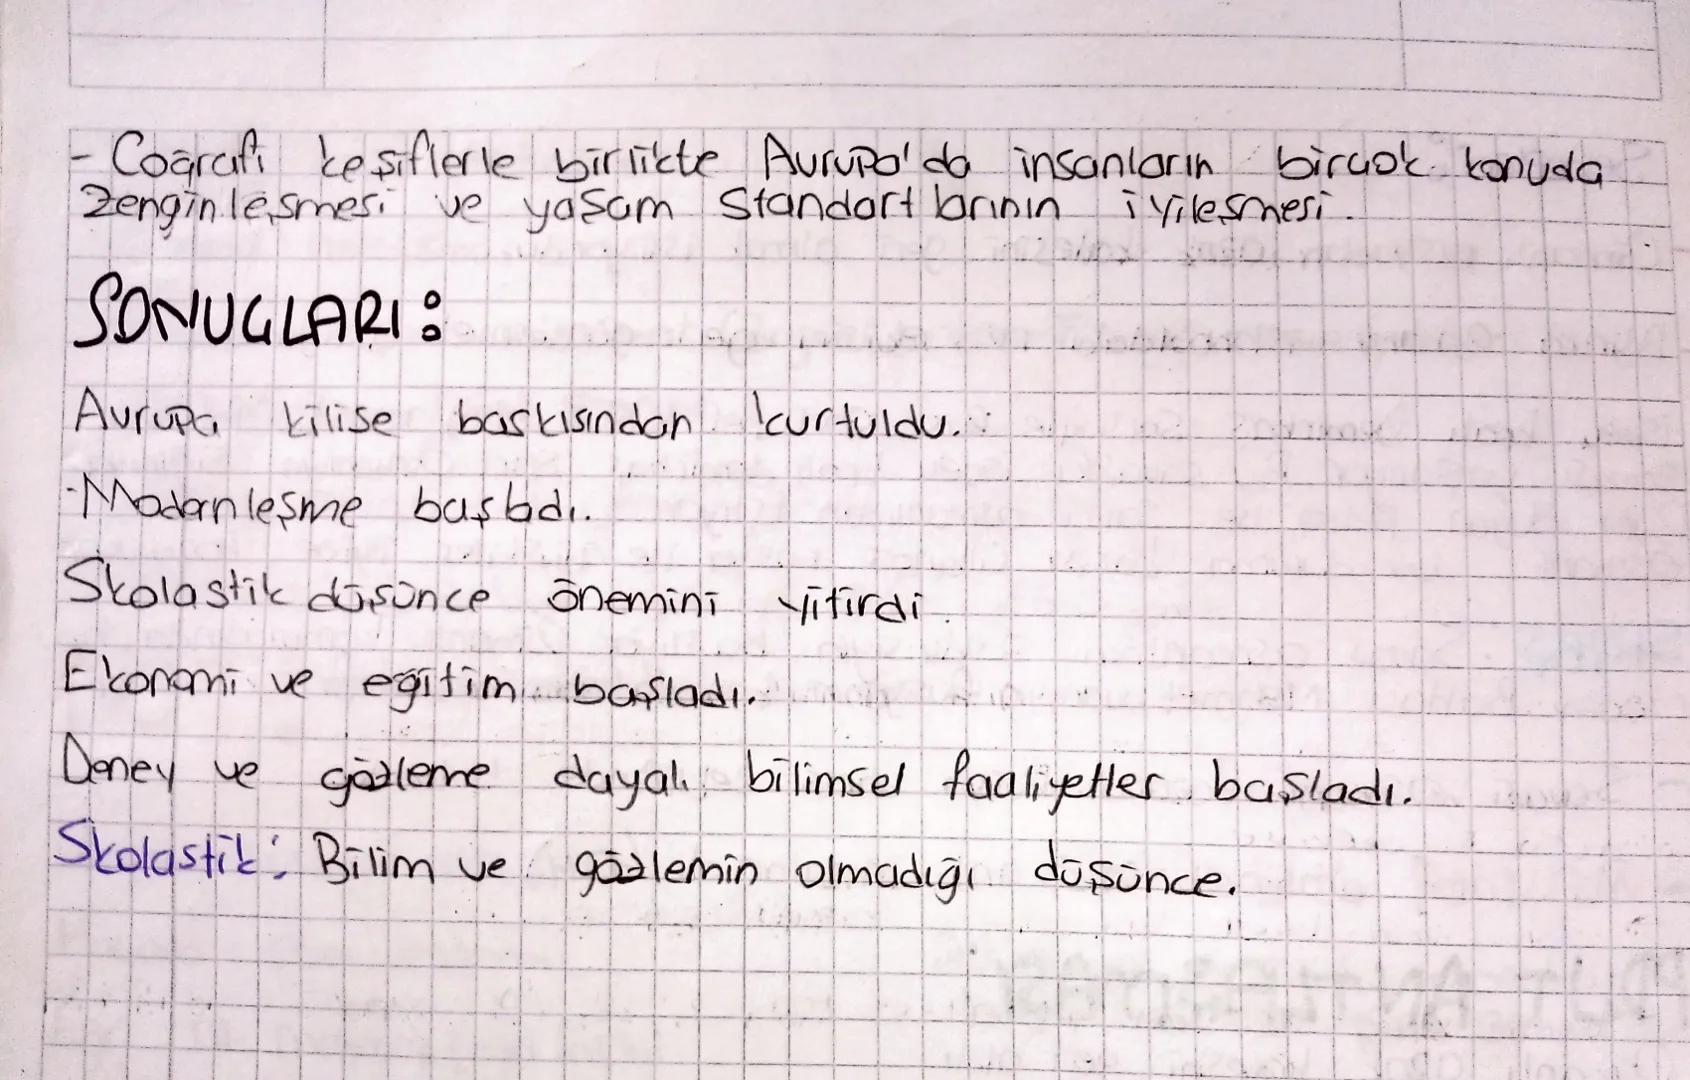 - Coğrafi keşiflerle birlikte Avrupa'da insanların birçok konuda
zenginleşmesi ve yaşam Standartlarının iyileşmesi.
SONUÇLARI:
Avrupa kilise baskısından kurtuldu.
-Modernleşme başladı.
Skolastik düşünce önemini yitirdi.
Ekonomi ve eğitim başladı.
Deney ve gözleme dayalı bilimsel faaliyetler başladı.
Skolastik: Bilim ve gözlemin olmadığı düşünce.